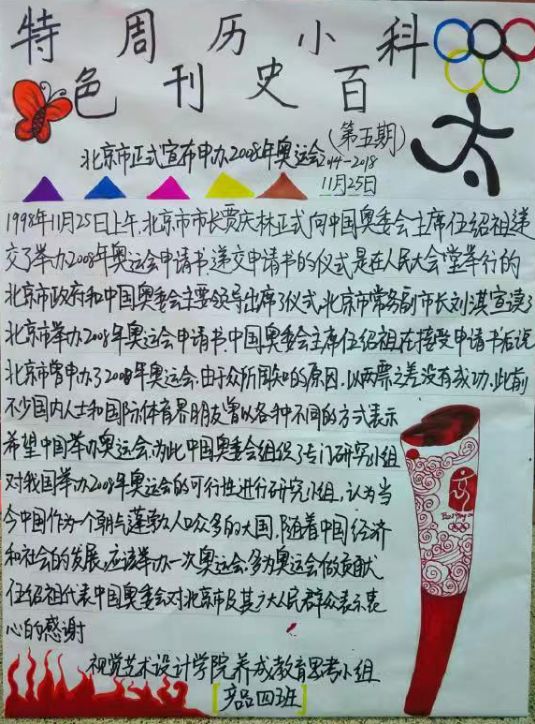 特周历小科
色刊史百
(第五期)
北京市正式宣布申办2008年奥运会
2014-2018
11月25日
1998年11月25日上午,北京市市长贾庆林正式向中国奥委会主席伍绍祖递
交了举办2008年奥运会申请书递交申请书的仪式是在人民大会堂举行的
北京市政府和中国奥委会主要领导出席了仪式,北京市常务副市长刘淇宣读了
北京市举办2008年奥运会申请书.中国奥委会主席伍绍祖在接受申请书后说
北京市曾申办了2008年奥运会.由于众所周知的原因,以两票之差没有成功.此前
不少国内人士和国际体育界朋友曾以各种不同的方式表示
希望中国举办奥运会,为此中国奥委会组织了专门研究小组
对我国举办2008年奥运会的可行性进行研究小组,认为当
今中国作为一个朝气蓬勃人口众多的大国,随着中国经济
和社会的发展,应该举办一次奥运会,多为奥运会做贡献
伍绍祖代表中国奥委会对北京市及其广大人民群众表示衷
心的感谢
Beijing
视觉艺术设计学院养成教育思考小组
[产品四班]